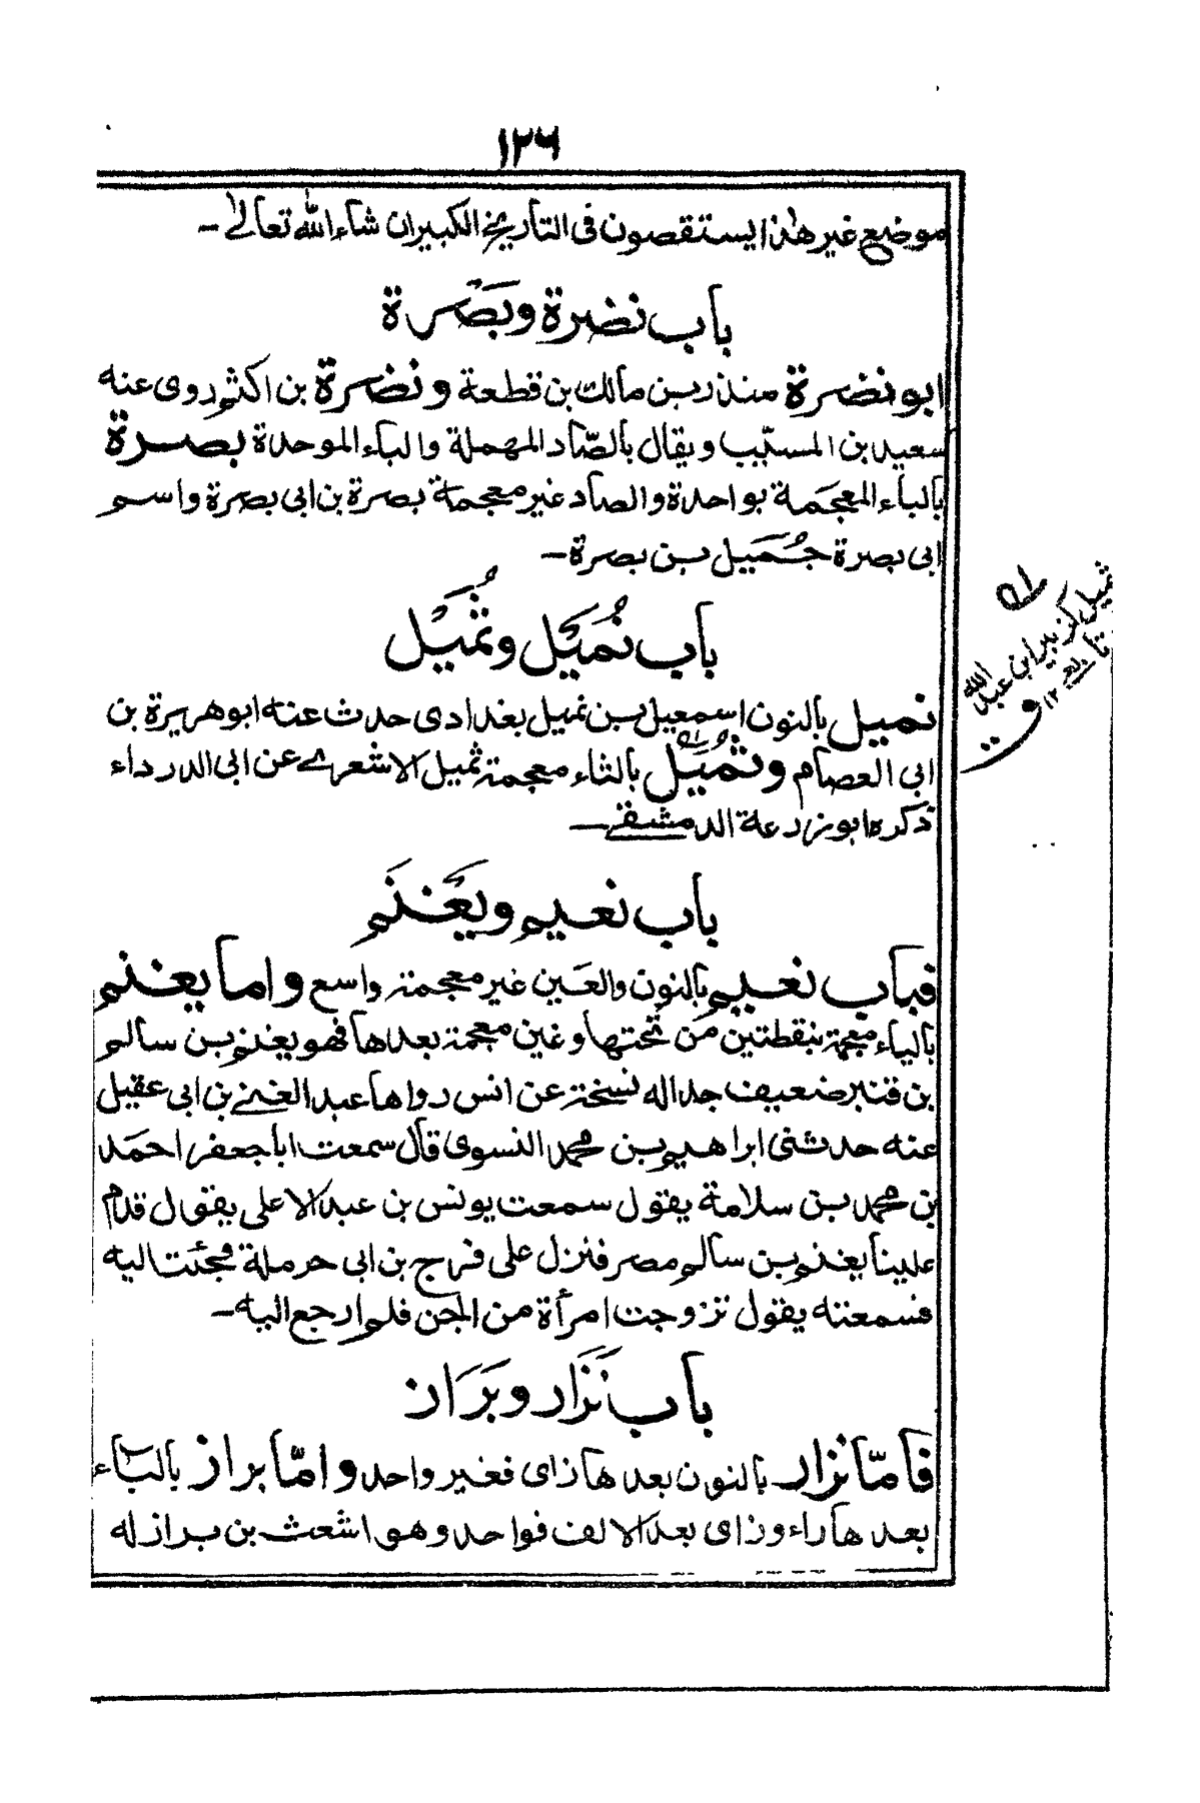 ١٢٦
موضع غير هذا يستقصون فى التأريخ الكبير ان شاء الله تعالى ـ
باب نضرة وبَصْرة
ابو نضرة منذر بن مالك بن قطعة ونضرة بن اكثم روى عنه
سعيد بن المسيّب ويقال بالصّاد المهملة والباء الموحدة بصرة
بالباء المعجمة بواحدة والصاد غير معجمة بصرة بن ابى بصرة واسم
ابى بصرة جُمَيل بن بصرة ـ
باب نُمَيْل وثُمَيْل
نميل بالنون اسمعيل بن نميل بغدادى حدث عنه ابو هريرة بن
ابى العصام وثُمَيْل بالثاء معجمة ثميل الاشعرى عن ابى الدرداء
ذكره ابو زرعة الدمشقى ـ
باب نعيم ويَغْنَم
فباب نعيم بالنون والعَين غير معجمة واسع واما يغنم
بالياء معجمة بنقطتين من تحتها وغين معجمة بعدها فهو يغنم بن سالم
بن قنبر ضعيف جدا له نسخة عن انس رواها عبد الغنى بن ابى عقيل
عنه حدثنى ابراهيم بن محمد النسوى قال سمعت ابا جعفر احمد
بن محمد بن سلامة يقول سمعت يونس بن عبد الاعلى يقول قدم
علينا يغنم بن سالم مصر فنزل على فرج بن ابى حرملة فجئت اليه
فسمعته يقول تزوجت امرأة من الجن فلم ارجع اليه ـ
باب نَزَار وبَرَاز
فأمّا نزار بالنون بعدها زاى فغير واحد وامّا براز بالباء
بعدها راء وزاى بعد الالف فواحد وهو اشعث بن براز له
ثميل كزبير ابن عبد الله
تابعى ١٢